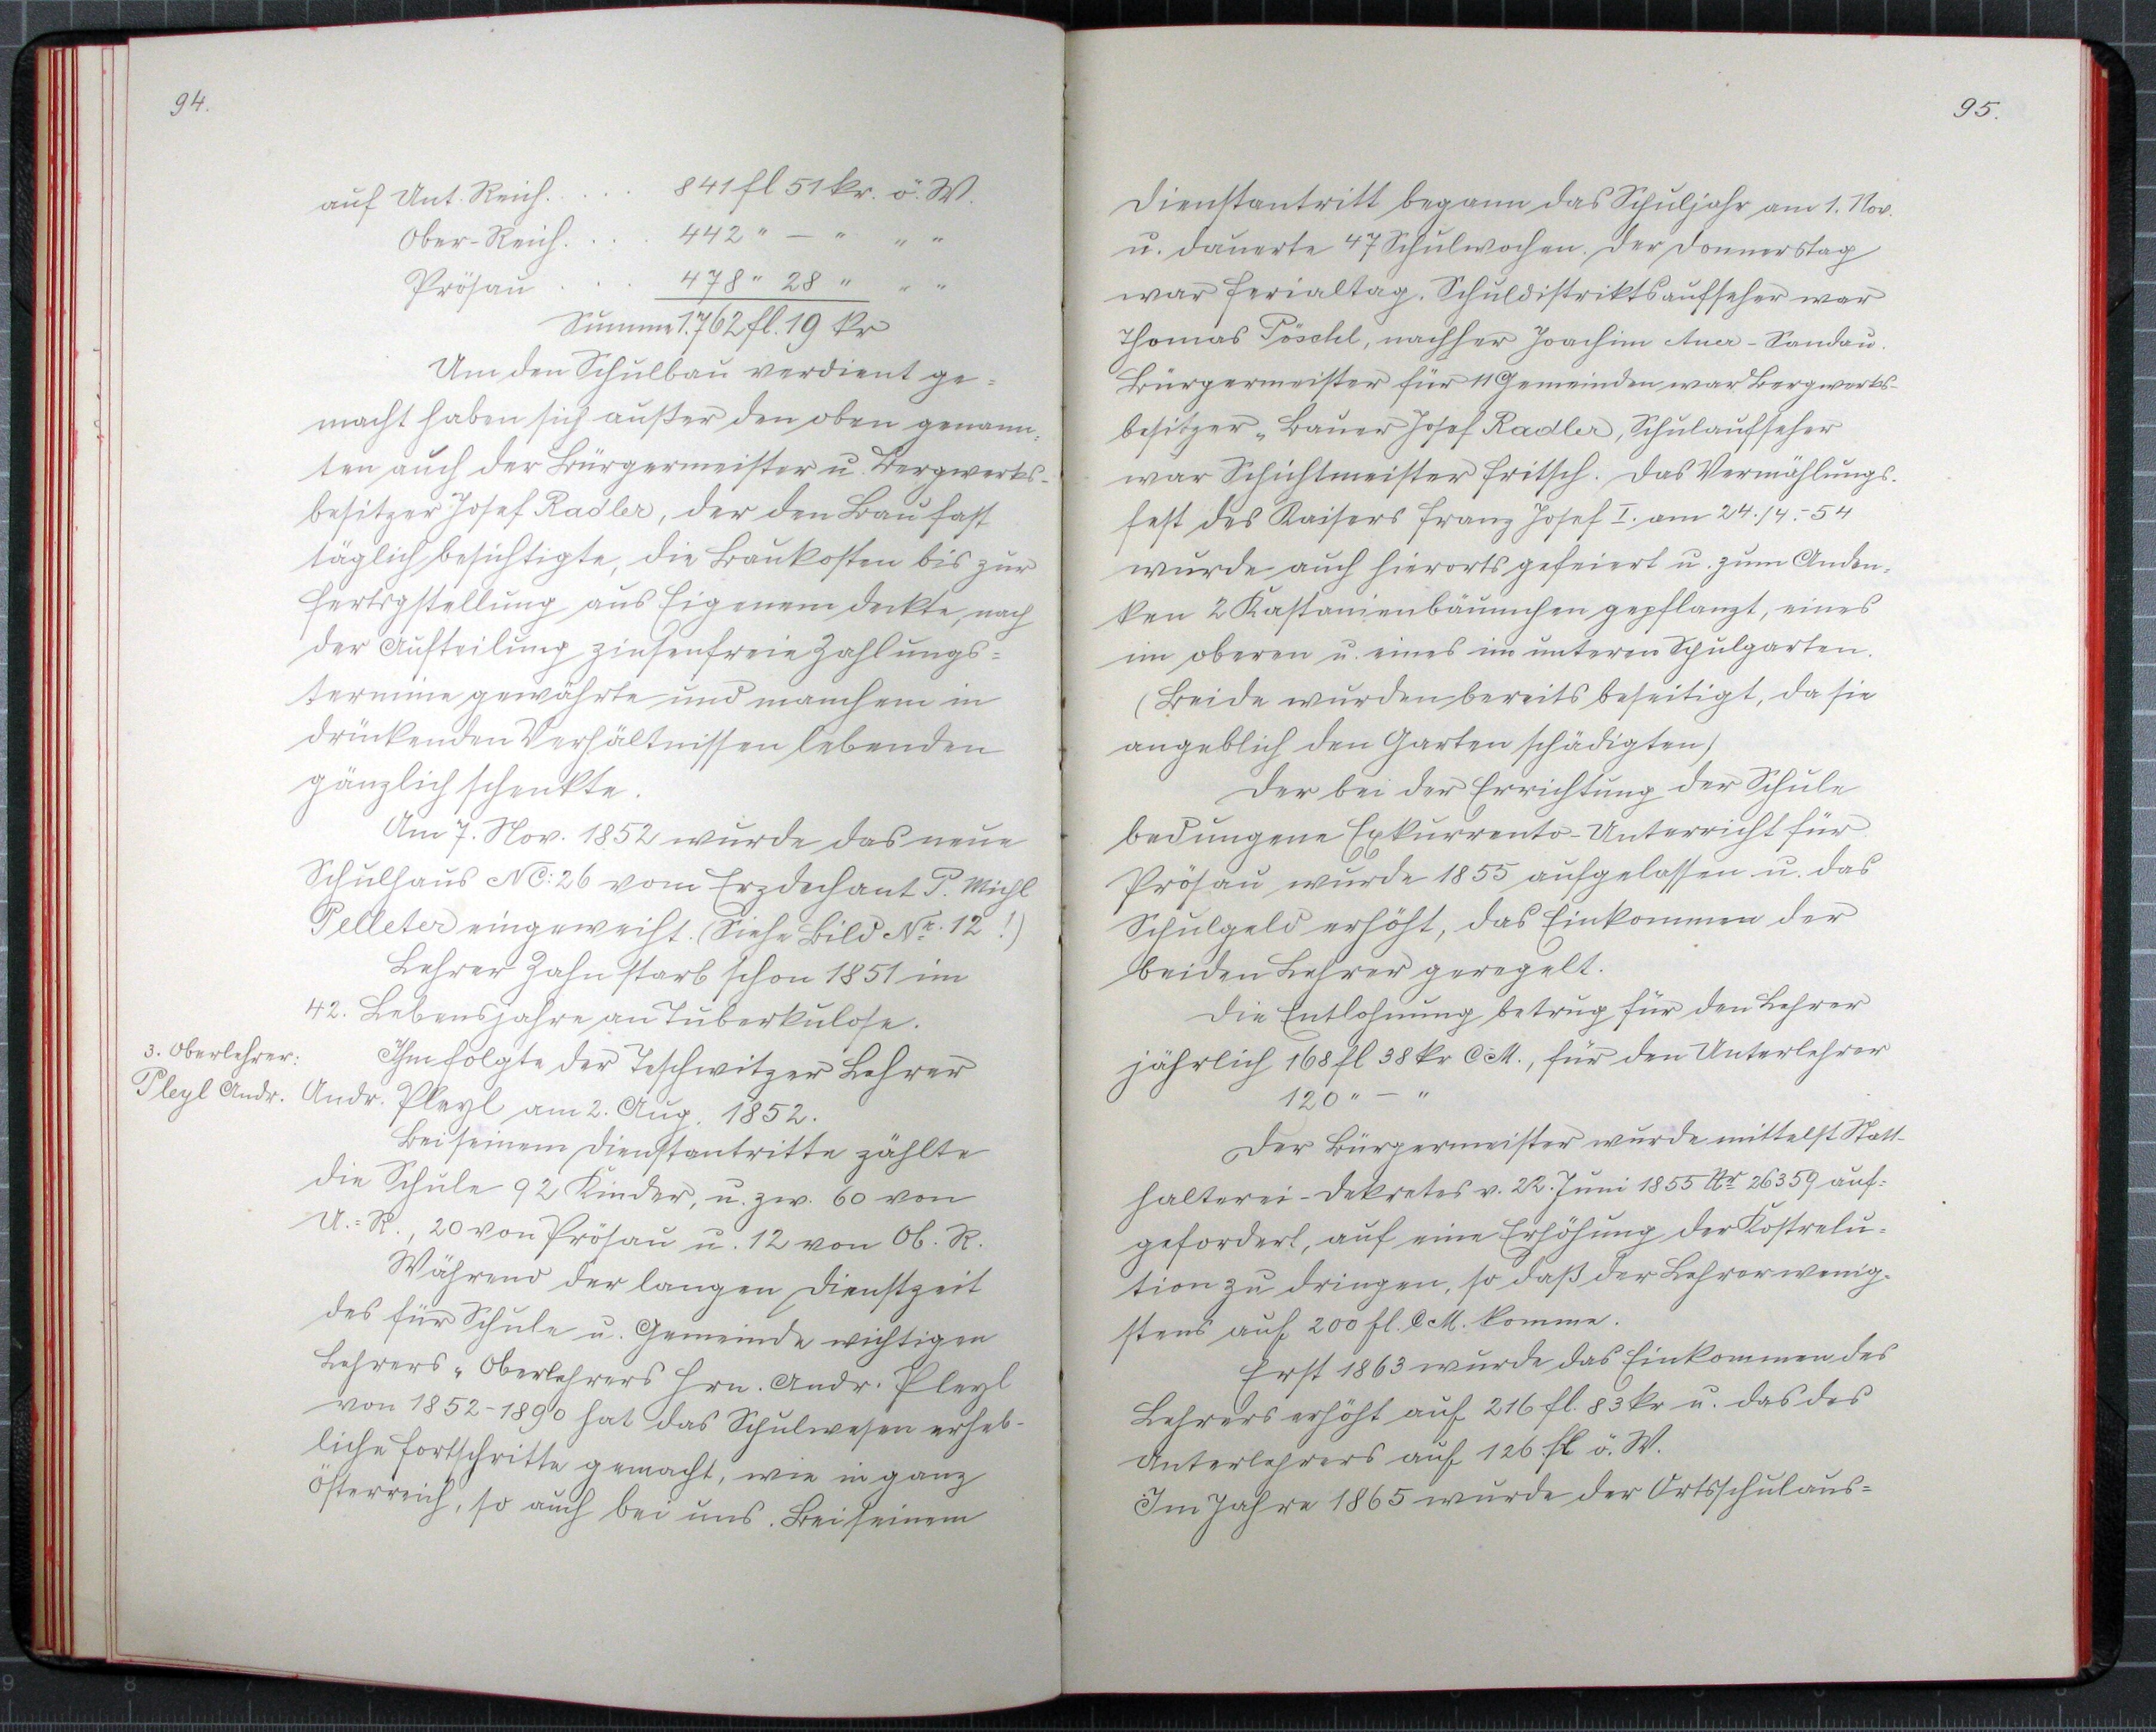 94.
auf Unt. Reich. . . . 841 fl 51 kr. ö. W.
Ober-Reich. . . . 442 " — " " "
Prösau . . . 478 " 28 " " "
Summe 1.762 fl. 19 kr
Um den Schulbau verdient ge=
macht haben sich außer den oben genann=
ten auch der Bürgermeister u. Bergwerks-
besitzer Josef Radler, der den Bau fast
täglich besichtigte, die Baukosten bis zur
Fertigstellung aus Eigenem deckte, nach
der Aufteilung zinsenfreie Zahlungs=
termine gewährte und manchem in
drückenden Verhältnissen lebenden
gänzlich schenkte.
Am 7. Nov. 1852 wurde das neue
Schulhaus NC: 26 vom Erzdechant P. Michl
Pelleter eingeweiht. (Siehe Bild Nr. 12!)
Lehrer Zahn starb schon 1851 im
42. Lebensjahre an Tuberkulose.
3. Oberlehrer:
Pleyl Andr.
Ihm folgte der Teschwitzer Lehrer
Andr. Pleyl am 2. Aug. 1852.
Bei seinem Dienstantritte zählte
die Schule 92 Kinder, u. zw. 60 von
U.=R., 20 von Prösau u. 12 von Ob. R.
Während der langen Dienstzeit
des für Schule u. Gemeinde wichtigen
Lehrers " Oberlehrers Hrn. Andr. Pleyl
von 1852-1890 hat das Schulwesen erheb-
liche Fortschritte gemacht, wie in ganz
Österreich, so auch bei uns. Bei seinem
95.
Dienstantritt begann das Schuljahr am 1. Nov.
u. dauerte 47 Schulwochen. Der Donnerstag
war Ferialtag. Schuldistriktsaufseher war
Thomas Pöschl, nachher Joachim Auer - Sandau.
Bürgermeister für 11 Gemeinden war Bergwerks-
besitzer " Bauer Josef Radler, Schulaufseher
war Schichtmeister Fritsch. Das Vermählungs-
fest des Kaisers Franz Josef I. am 24./4.-54
wurde auch hierorts gefeiert u. zum Anden=
ken 2 Kastanienbäumchen gepflanzt, eines
im oberen u. eines im unteren Schulgarten.
(Beide wurden bereits beseitigt, da sie
angeblich den Garten schädigten)
Der bei der Errichtung der Schule
bedungene Exkurrento-Unterricht für
Prösau wurde 1855 aufgelassen u. das
Schulgeld erhöht, das Einkommen der
beiden Lehrer geregelt.
Die Entlohnung betrug für den Lehrer
jährlich 168 fl 38 kr C.M., für den Unterlehrer
120 " — "
Der Bürgermeister wurde mittelst Statt-
halterei-Dekretes v. 22. Juni 1855 Nr 26359 auf=
gefordert, auf eine Erhöhung der Kostrelu=
tion zu dringen, so daß der Lehrer wenig-
stens auf 200 fl. C.M. komme.
Erst 1863 wurde das Einkommen des
Lehrers erhöht auf 216 fl. 83 kr u. das des
Unterlehrers auf 126 fl ö. W.
Im Jahre 1865 wurde der Ortsschulaus=